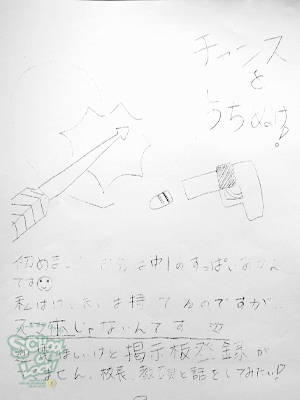 チャンス
と
うちぬけ!
初めまし
中1のすっぱいみかん
です
私はけいたいは持ってるのですが…
スマホじゃないんです
ほしいけど掲示板登録が
せん、校長、教頭と話をしてみたい!
SCHOOL OF LOCK!